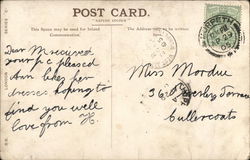 POST CARD.
This Space may be used for Inland Communication.
The Address only to be written here.
Dear M received
your p c pleased
Ann likes her
dresses hoping to
find you well
love from H.
Miss Mordue
36 Beverley Terrace
Cullercoats
MORPETH